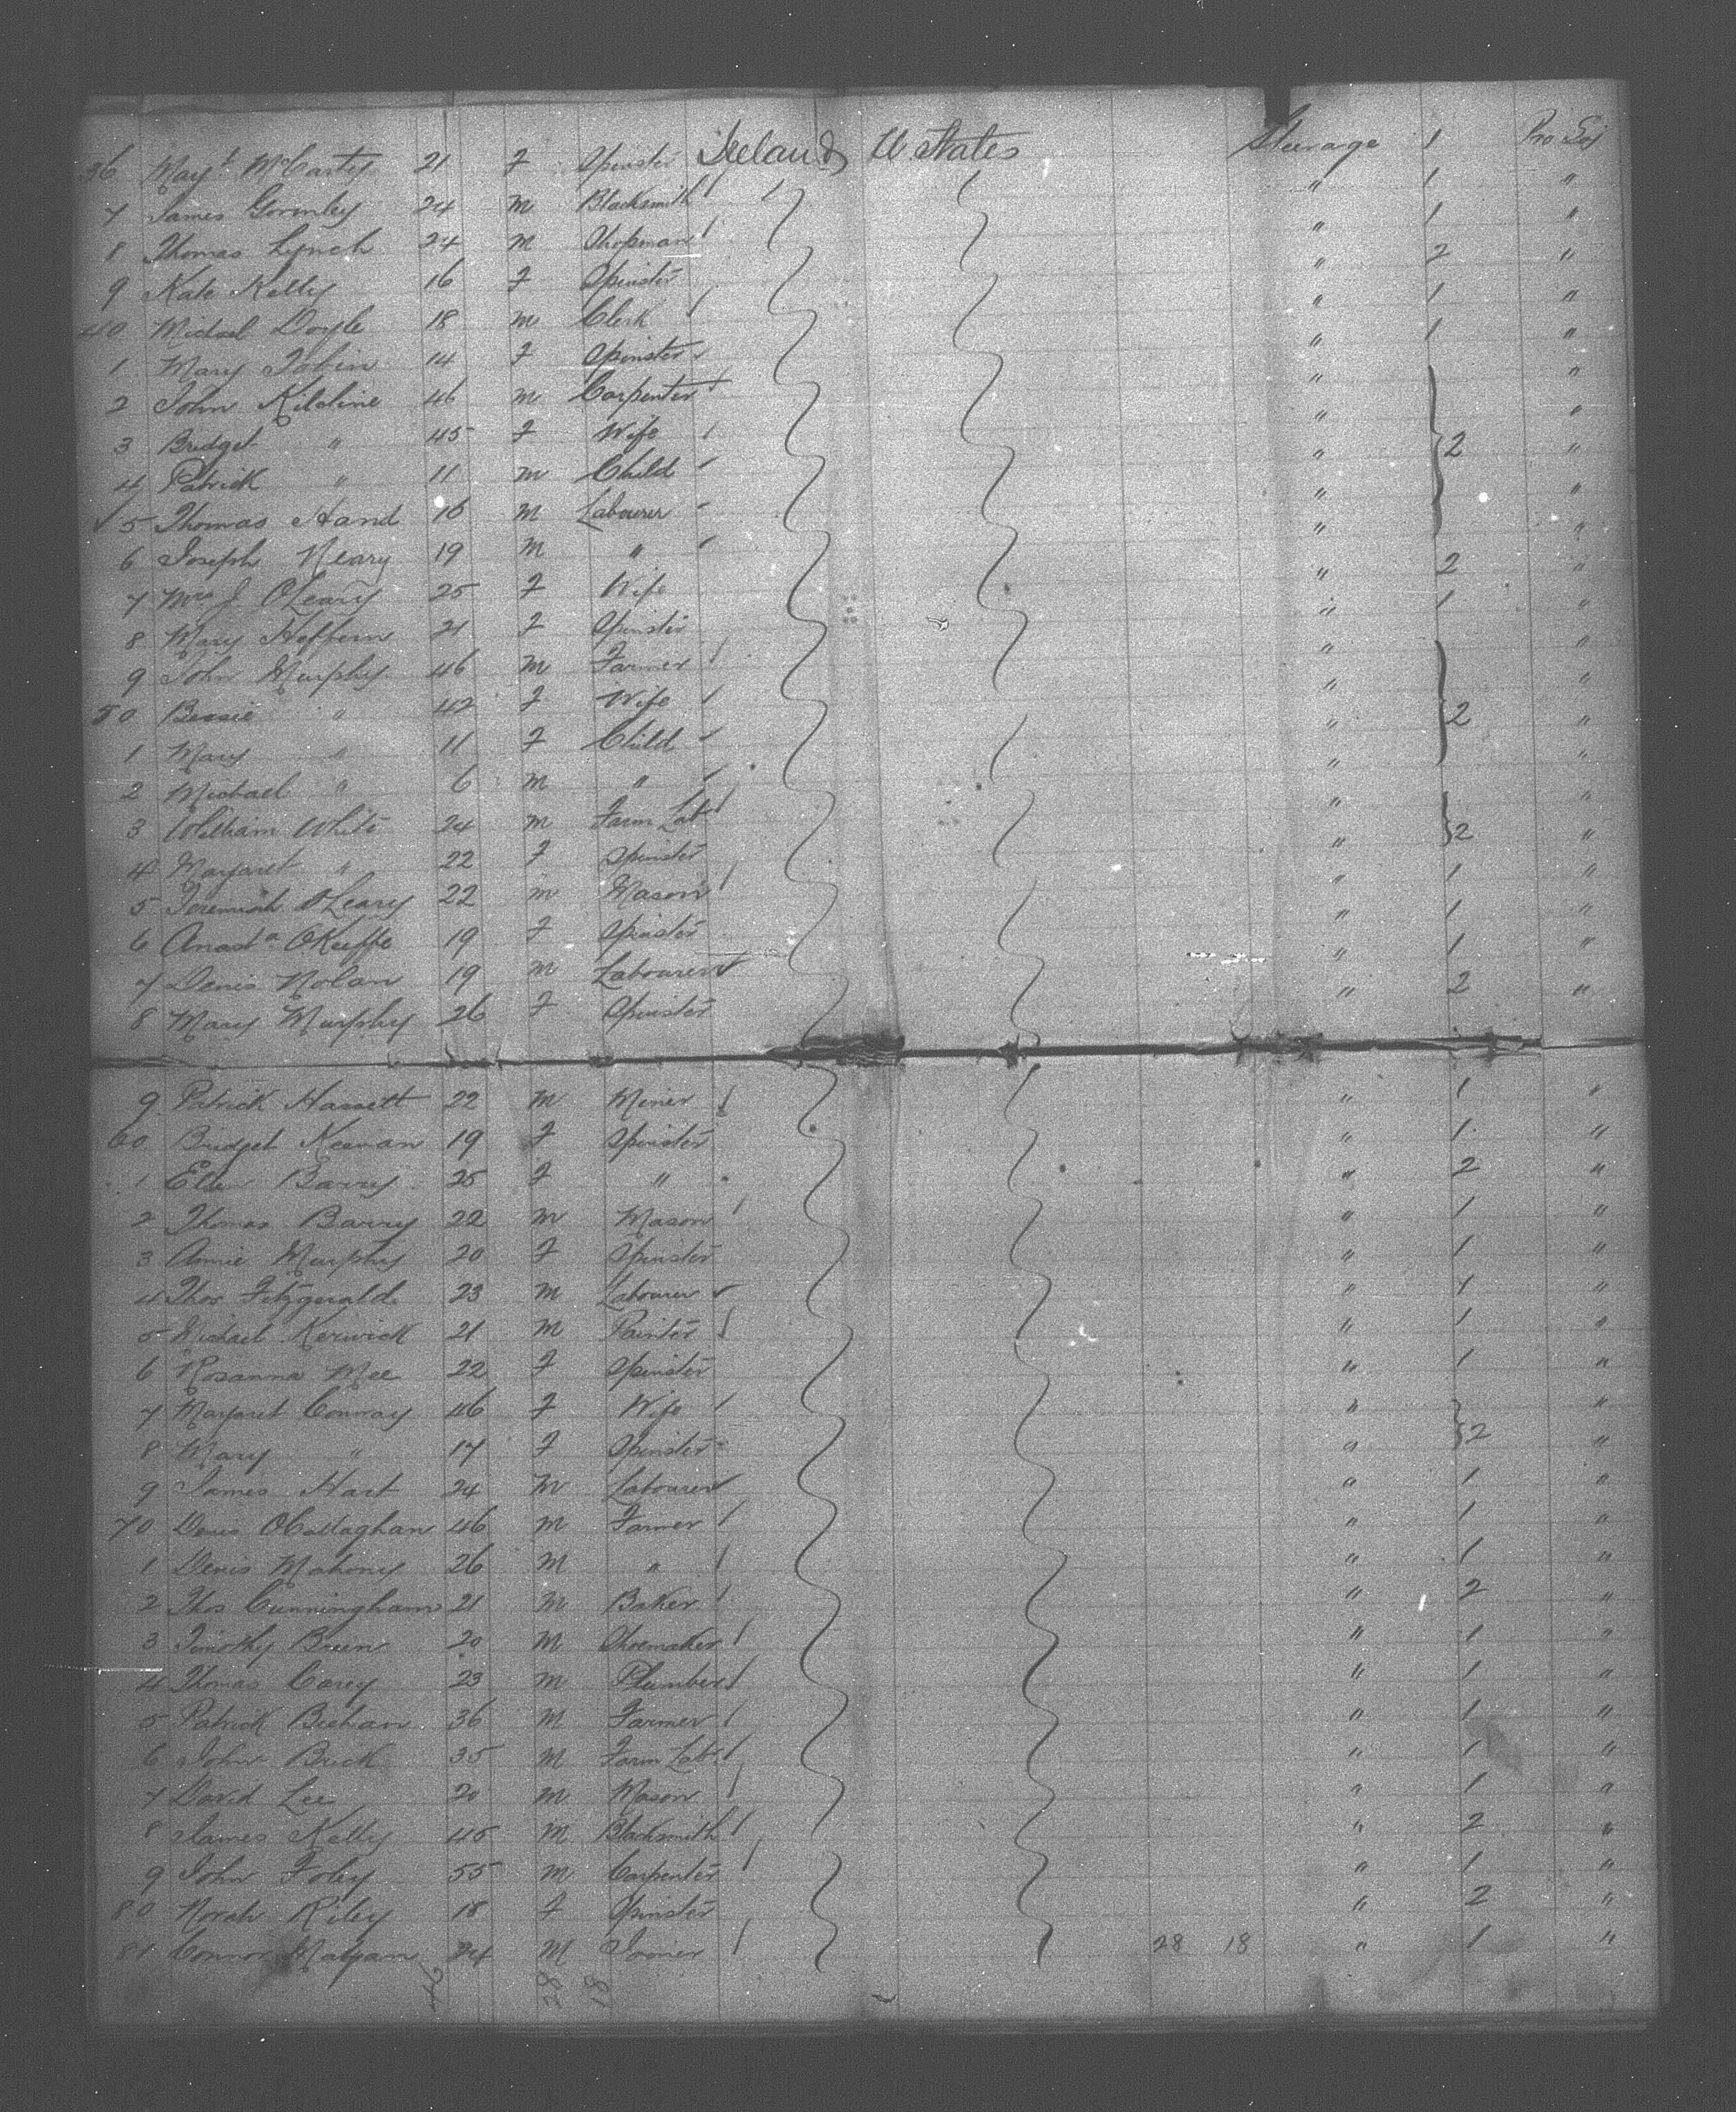 36 Mayt McCarty 21 F Spinster Ireland U States Steerage 1 Pro Soj
7 James Gormley 24 M Blacksmith / " 1 "
8 Thomas Lynch 24 M Shopman / " 1 "
9 Kate Kelly 16 F Spinster " 2 "
40 Michael Doyle 18 M Clerk / " 1 "
1 Mary Tobin 14 F Spinster " 1 "
2 John Kilcline 46 M Carpenter / " "
3 Bridget " 45 F Wife / " 2 "
4 Patrick " 11 M Child / " "
5 Thomas Hand 16 M Labourer " "
6 Joseph Neary 19 M " / " "
7 Mrs J OLeary 25 F Wife " 2 "
8 Mary Heffern 21 F Spinster " 1 "
9 John Murphy 46 M Farmer / " "
50 Bessie " 42 F Wife / " 2 "
1 Mary " 11 F Child " "
2 Michael " 6 M " " "
3 William White 24 M Farm Labr / " 2 "
4 Margaret " 22 F Spinster " "
5 Jeremiah OLeary 22 M Mason / " 1 "
6 Anasta OKeiffe 19 F Spinster " 1 "
7 Denis Nolan 19 M Labourer " 1 "
8 Mary Murphy 26 F Spinster " 2 "
9 Patrick Hassett 22 M Miner / " 1 "
60 Bridget Keenan 19 F Spinster " 1 "
1 Ellen Barry 25 F " " 2 "
2 Thomas Barry 22 M Mason / " 1 "
3 Annie Murphy 20 F Spinster " 1 "
4 Thos Fitzgerald 23 M Labourer " 1 "
5 Michael Kerwick 21 M Painter / " 1 "
6 Rosanna Mee 22 F Spinster " 1 "
7 Margaret Conway 46 F Wife / " 2 "
8 Mary " 17 F Spinster " "
9 James Hart 24 M Labourer " 1 "
70 Denis OCallaghan 46 M Farmer / " 1 "
1 Denis Mahony 26 M " / " 1 "
2 Thos Cunningham 21 M Baker / " 2 "
3 Timothy Breen 20 M Shoemaker / " 1 "
4 Thomas Carey 23 M Plumber / " 1 "
5 Patrick Beehan 36 M Farmer / " 1 "
6 John Brick 35 M Farm Labr / " 1 "
7 David Lee 20 M Mason / " 1 "
8 James Kelly 45 M Blacksmith / " 2 "
9 John Foley 55 M Carpenter / " 1 "
80 Norah Riley 18 F Spinster " 2 "
81 Connor 24 M Joiner / 28 18 " 1 "
46 28 18